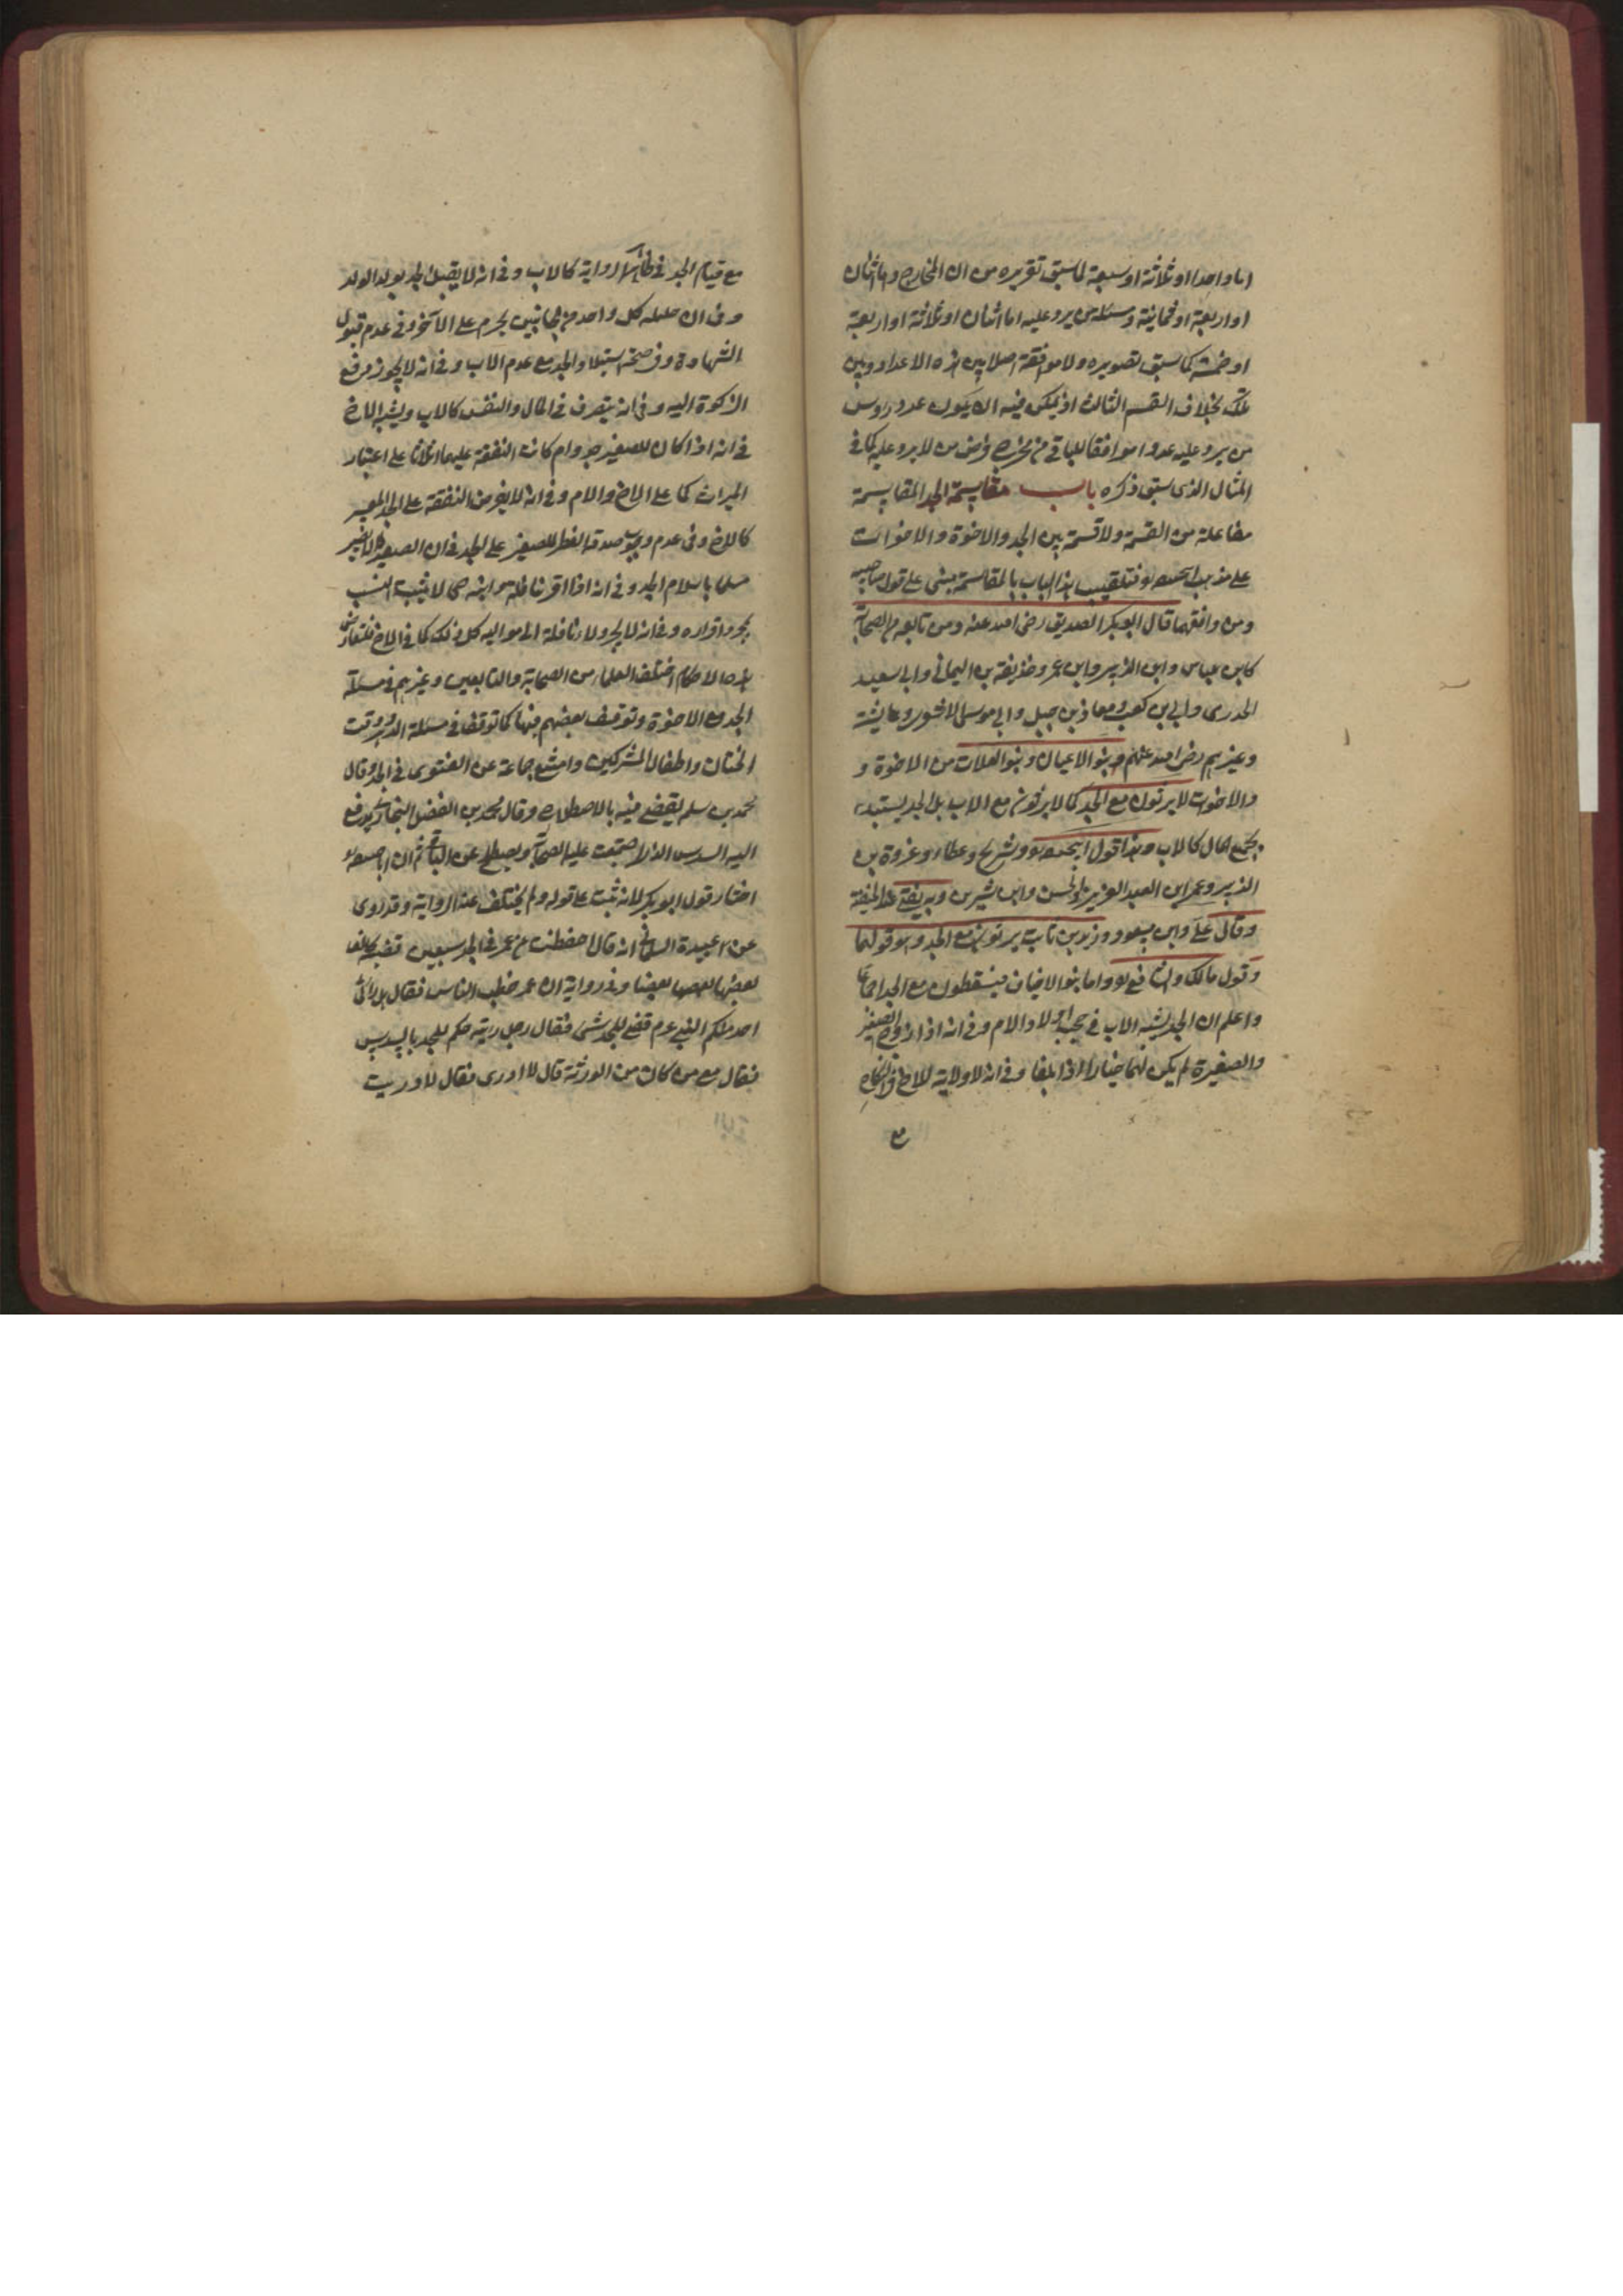 اما واحدا او ثلاثة او سبعة لما سبق تقريره من ان المخارج واما اثنان
او اربعة او ثمانية ومسئلة من يرد عليه اما اثنان او ثلاثة او اربعة
او خمسة كما سبق تصويره ولا موافقة اصلا بين هذه الاعداد وبين
تلك بخلاف القسم الثالث اذ يمكن فيه ان يكون عدد رؤس
من يرد عليه عددا موافقا للباقي من مخرج فرض من لا يرد عليه كما في
المثال الذى سبق ذكره باب مقاسمة الجد المقاسمة
مفاعلة من القسمة ولا قسمة بين الجد والاخوة والاخوات
على مذهب ابيحنيفه فتلقيب هذا الباب بالمقاسمة يبتنى على قول صاحبيه
ومن وافقهما قال ابوبكر الصديق رضى الله عنه ومن تابعه من الصحابة
كابن عباس وابن الزبير وابن عمر وحذيفة بن اليمانى وابى سعيد
الخدرى وابى بن كعب ومعاذ بن جبل وابى موسى الاشعرى وعايشة
وغيرهم رضى الله عنهم وبنو الاعيان وبنو العلات من الاخوة و
والاخوت لا يرثون مع الجد كما لا يرثون مع الاب بل الجد يستبد
بجميع المال كالاب وهذا قول ابيحنيفه وشريح وعطاء وعروة بن
الزبير وعمر ابن العبد العزيز والحسن وابن شيرين وبه يفتى عند الحنفية
وقال على وابن مسعود وزيد بن ثابت يرثون مع الجد وهو قولهما
وقول مالك والشافعى واما بنو الاخياف فيسقطون مع الجد اجماعا
واعلم ان الجد يشبه الاب في حجب اولاد الام وفى انه اذا زوج الصغير
والصغيرة لم يكن لهما خيار اذا بلغا وفى انه لا ولاية للاخ في النكاح
مع
مع قيام الجد في ظاهر الرواية كالاب وفى انه لا يقتل الجد بولد الولد
وفى ان حليلة كل واحد من الجانبين يحرم على الآخر وفى عدم قبول
الشهادة وفى صحة استيلاد الجد مع عدم الاب وفى انه لا يجوز دفع
الزكوة اليه وفى انه يتصرف في المال والنفس كالاب ويشبه الاخ
في انه اذا كان للصغير جد وام كانت النفقة عليهما اثلاثا على اعتبار
الميراث كما على الاخ والام وفى انه لا يفرض النفقة على الجد المعسر
كالاخ وفى عدم وجوب صدقة الفطر للصغير على الجد وفى ان الصغير لا يصير
مسلما باسلام الجد وفى انه اذا اقر بنافلة وابنه حى لا يثبت النسب
بمجرد اقراره وفى انه لا يجر ولاء نافلة الى مواليه كل ذلك كما في الاخ فلتعارض
هذه الاحكام اختلف العلماء من الصحابة والتابعين وغيرهم في مسئلة
الجد مع الاخوة وتوقف بعضهم فيها كما توقف في مسئلة الدهر ووقت
الختان واطفال المشركين وامتنع جماعة عن الفتوى في الجد وقال
محمد بن سلمة يقضى فيه بالاصطلاح وقال محمد بن الفضل البخارى يدفع
اليه السدس الذى اجتمعت عليه الصحابة ويصطلح عن الباقى ثم ان ابحنيفه
اختار قول ابوبكر لانه ثبت على قوله ولم يختلف عنه الرواية وقد روى
عن عبيدة السلمانى انه قال حفظت من عمر في الجد سبعين قضية يخالف
بعضها بعضا وفى رواية ان عمر خطب الناس فقال هل رأى
احد منكم النبى عم قضى للجد شئ فقال رجل رايته حكم للجد بالسدس
فقال مع من كان من الورثة قال لا ادرى فقال لا دريت